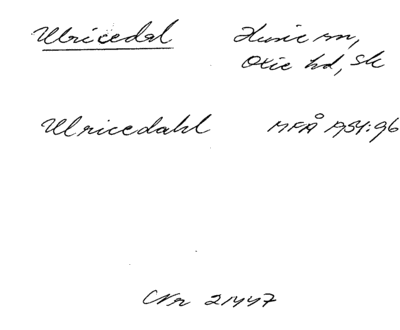 Ulricedal Husie sn,
Oxie hd, Sk
Ulricedahl MFÅ 1954:96
Nr 21447